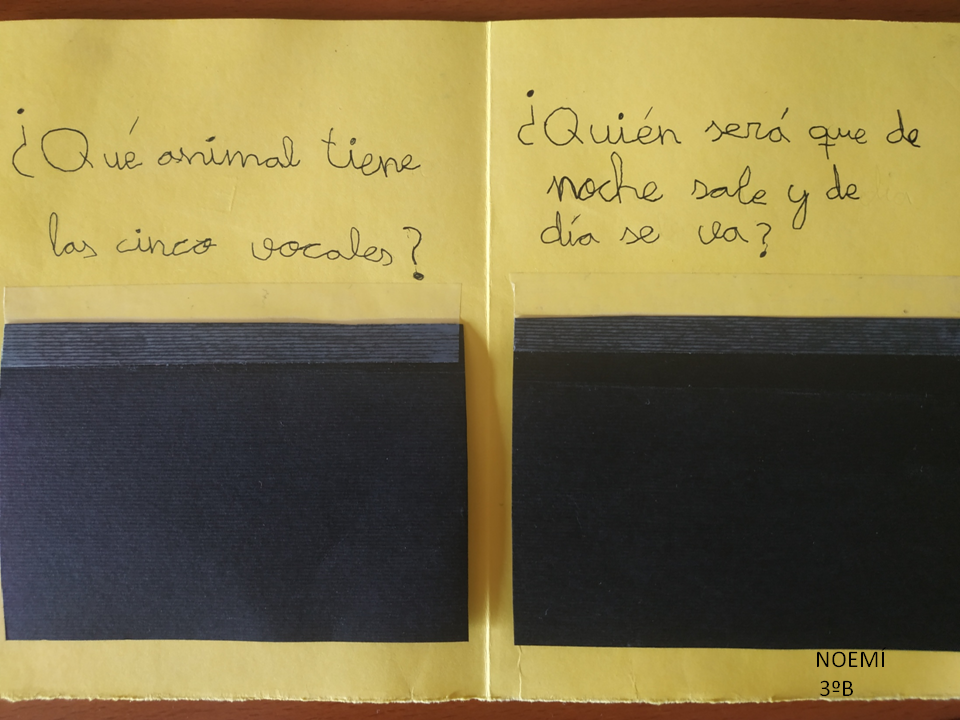 ¿Qué animal tiene
las cinco vocales?
¿Quién será que de
noche sale y de
día se va?
NOEMÍ
3ºB